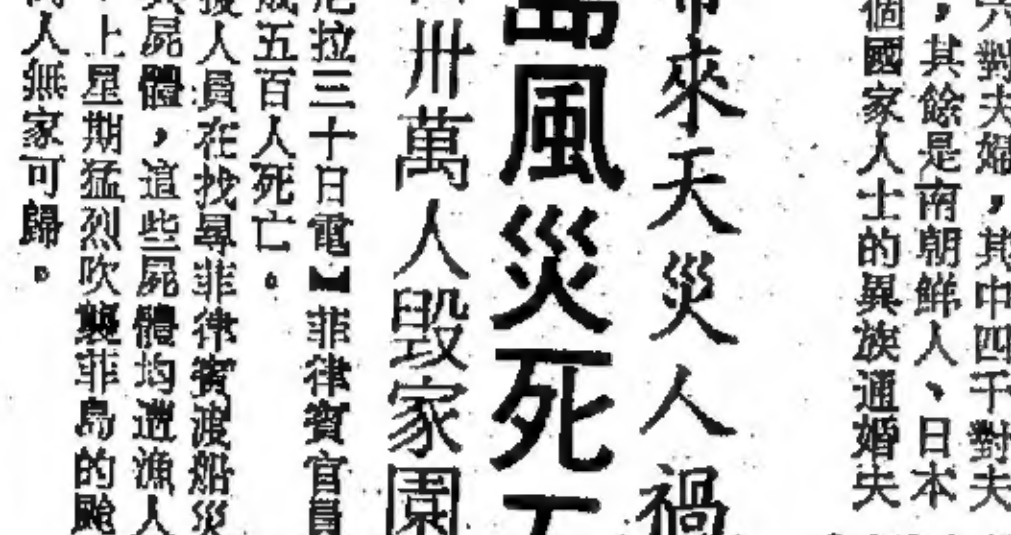 六對夫婦，其中四千對夫
，其餘是南朝鮮人、日本
個國家人士的異族通婚夫
帶來天災人禍
島風災死五
卅萬人毀家園
尼拉三十日電】菲律賓官員
成五百人死亡。
搜人員在找尋菲律賓渡船災
具屍體，這些屍體均遭漁人
上星期猛烈吹襲菲島的颱
萬人無家可歸。